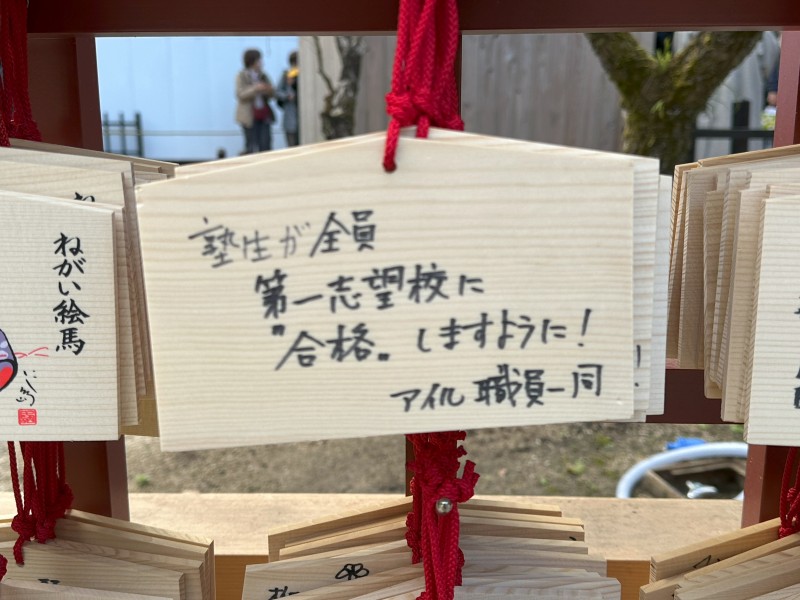 塾生が全員
第一志望校に
"合格"しますように!
アイル 職員一同
ねがい絵馬